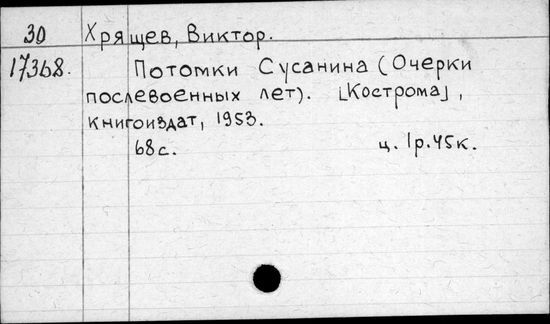 30 Хрящев, Виктор.
17368. Потомки Сусанина (Очерки
послевоенных лет). [Кострома],
книгоиздат, 1953.
68с. ц. 1р.45к.